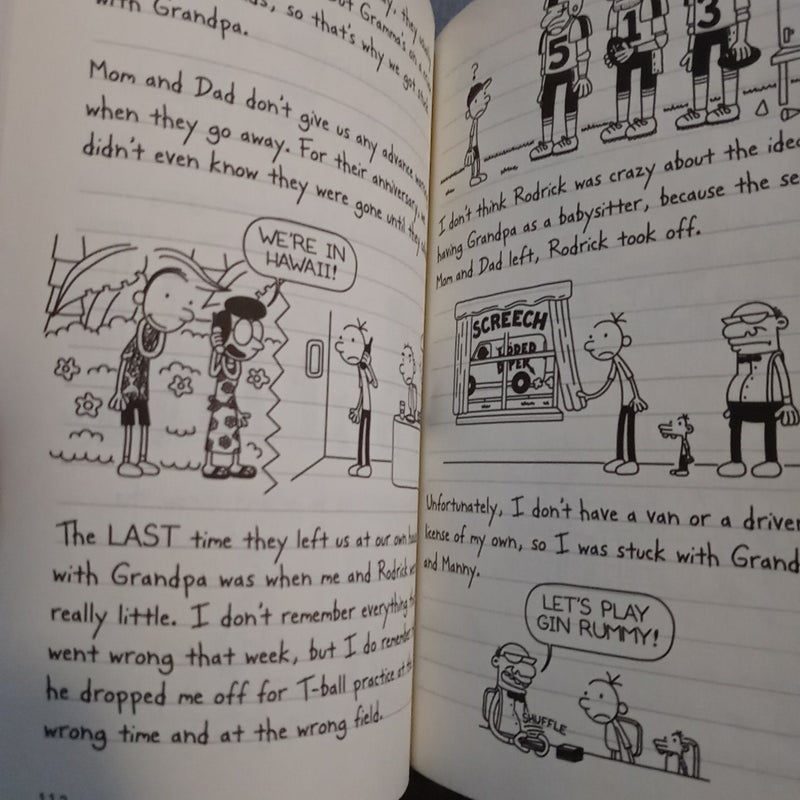 so that's why we got
with Grandpa.
Mom and Dad don't give us any advance
when they go away. For their anniversary,
didn't even know they were gone until they
WE'RE IN
HAWAII!
The LAST time they left us at our own
with Grandpa was when me and Rodrick
really little. I don't remember everything
went wrong that week, but I do remember
he dropped me off for T-ball practice at the
wrong time and at the wrong field.
5
1
3
?
I don't think Rodrick was crazy about the idea
having Grandpa as a babysitter, because the
Mom and Dad left, Rodrick took off.
SCREECH
Unfortunately, I don't have a van or a driver
license of my own, so I was stuck with
and Manny.
LET'S PLAY
GIN RUMMY!
SHUFFLE